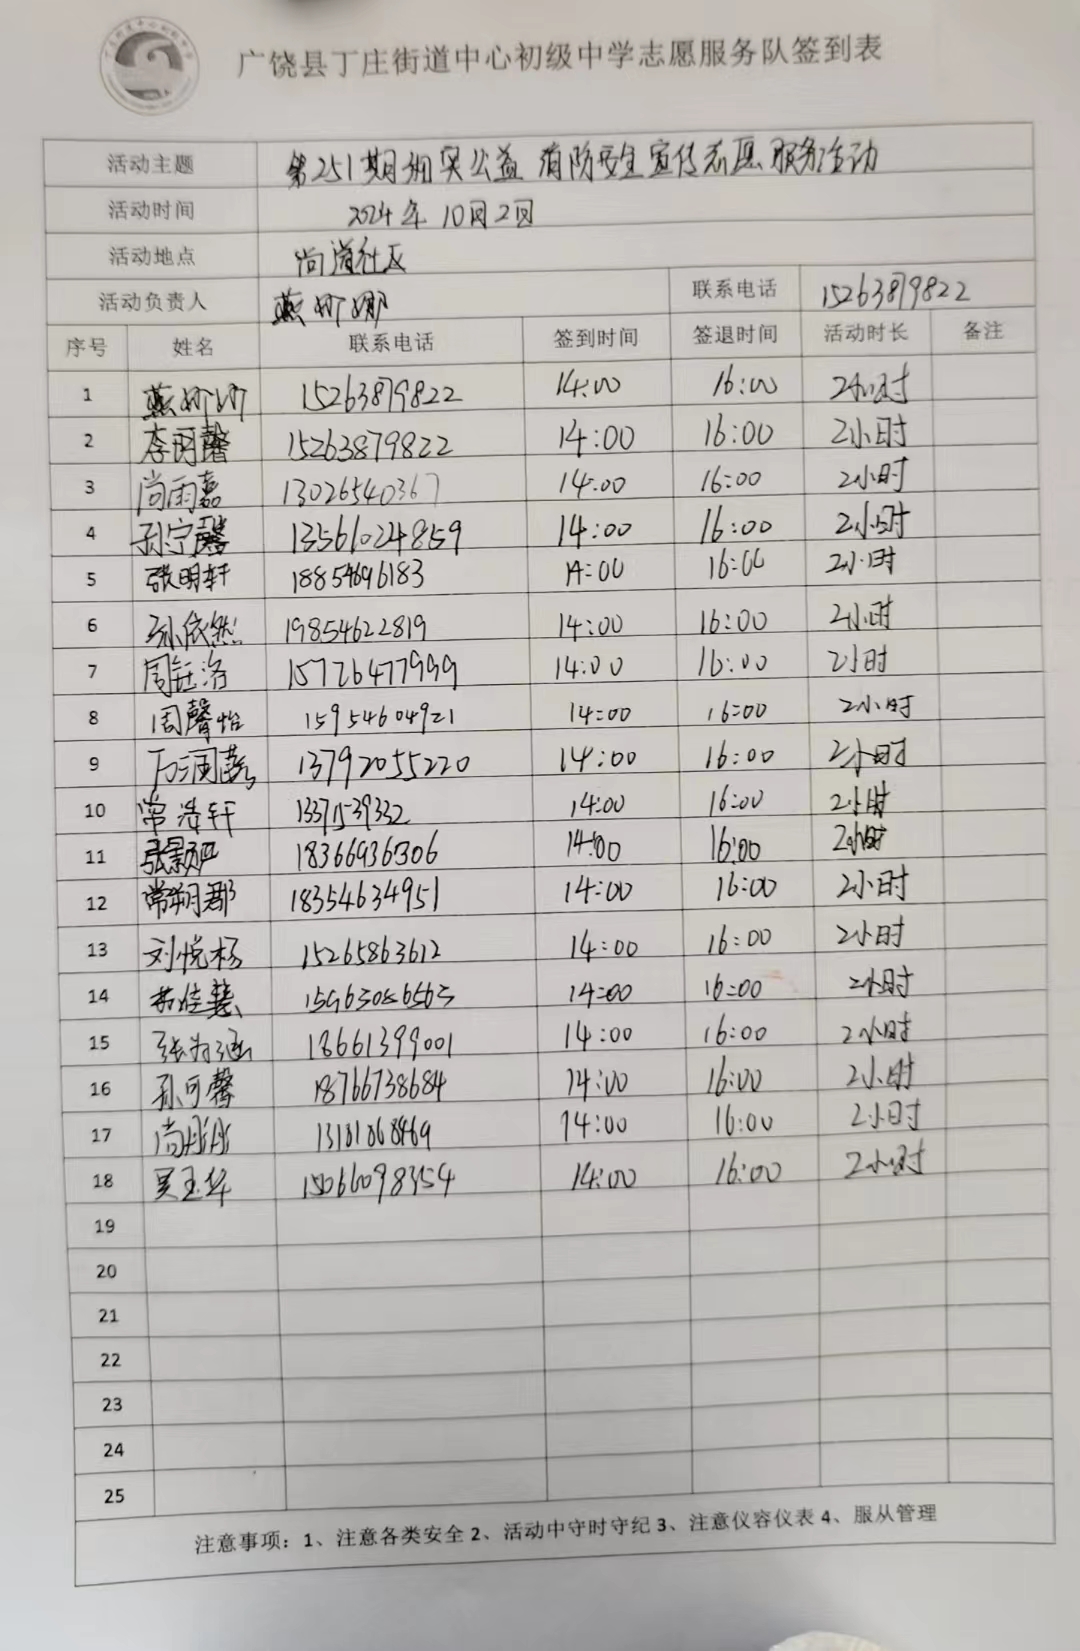 广饶县丁庄街道中心初级中学志愿服务队签到表
活动主题 第251期翔昊公益 消防安全宣传志愿服务活动
活动时间 2024年10月2日
活动地点 尚道社区
活动负责人 燕娜娜 联系电话 15263879822
序号 姓名 联系电话 签到时间 签退时间 活动时长 备注
1 燕娜娜 15263879822 14:00 16:00 2小时
2 李玥馨 15263879822 14:00 16:00 2小时
3 尚雨嘉 13026540367 14:00 16:00 2小时
4 孙宁馨 13561024859 14:00 16:00 2小时
5 张明轩 18854696183 14:00 16:00 2小时
6 孙依然 19854622819 14:00 16:00 2小时
7 周钰洛 15726477999 14:00 16:00 2小时
8 周馨怡 15954604921 14:00 16:00 2小时
9 13792055220 14:00 16:00 2小时
10 常浩轩 13371539332 14:00 16:00 2小时
11 18366936306 14:00 16:00 2小时
12 常朔郡 18354634951 14:00 16:00 2小时
13 刘悦杨 15265863612 14:00 16:00 2小时
14 15963086563 14:00 16:00 2小时
15 张为涵 18661399001 14:00 16:00 2小时
16 孙可馨 18766738684 14:00 16:00 2小时
17 尚彤彤 13181068469 14:00 16:00 2小时
18 吴玉华 15066098354 14:00 16:00 2小时
19
20
21
22
23
24
25
注意事项：1、注意各类安全 2、活动中守时守纪 3、注意仪容仪表 4、服从管理